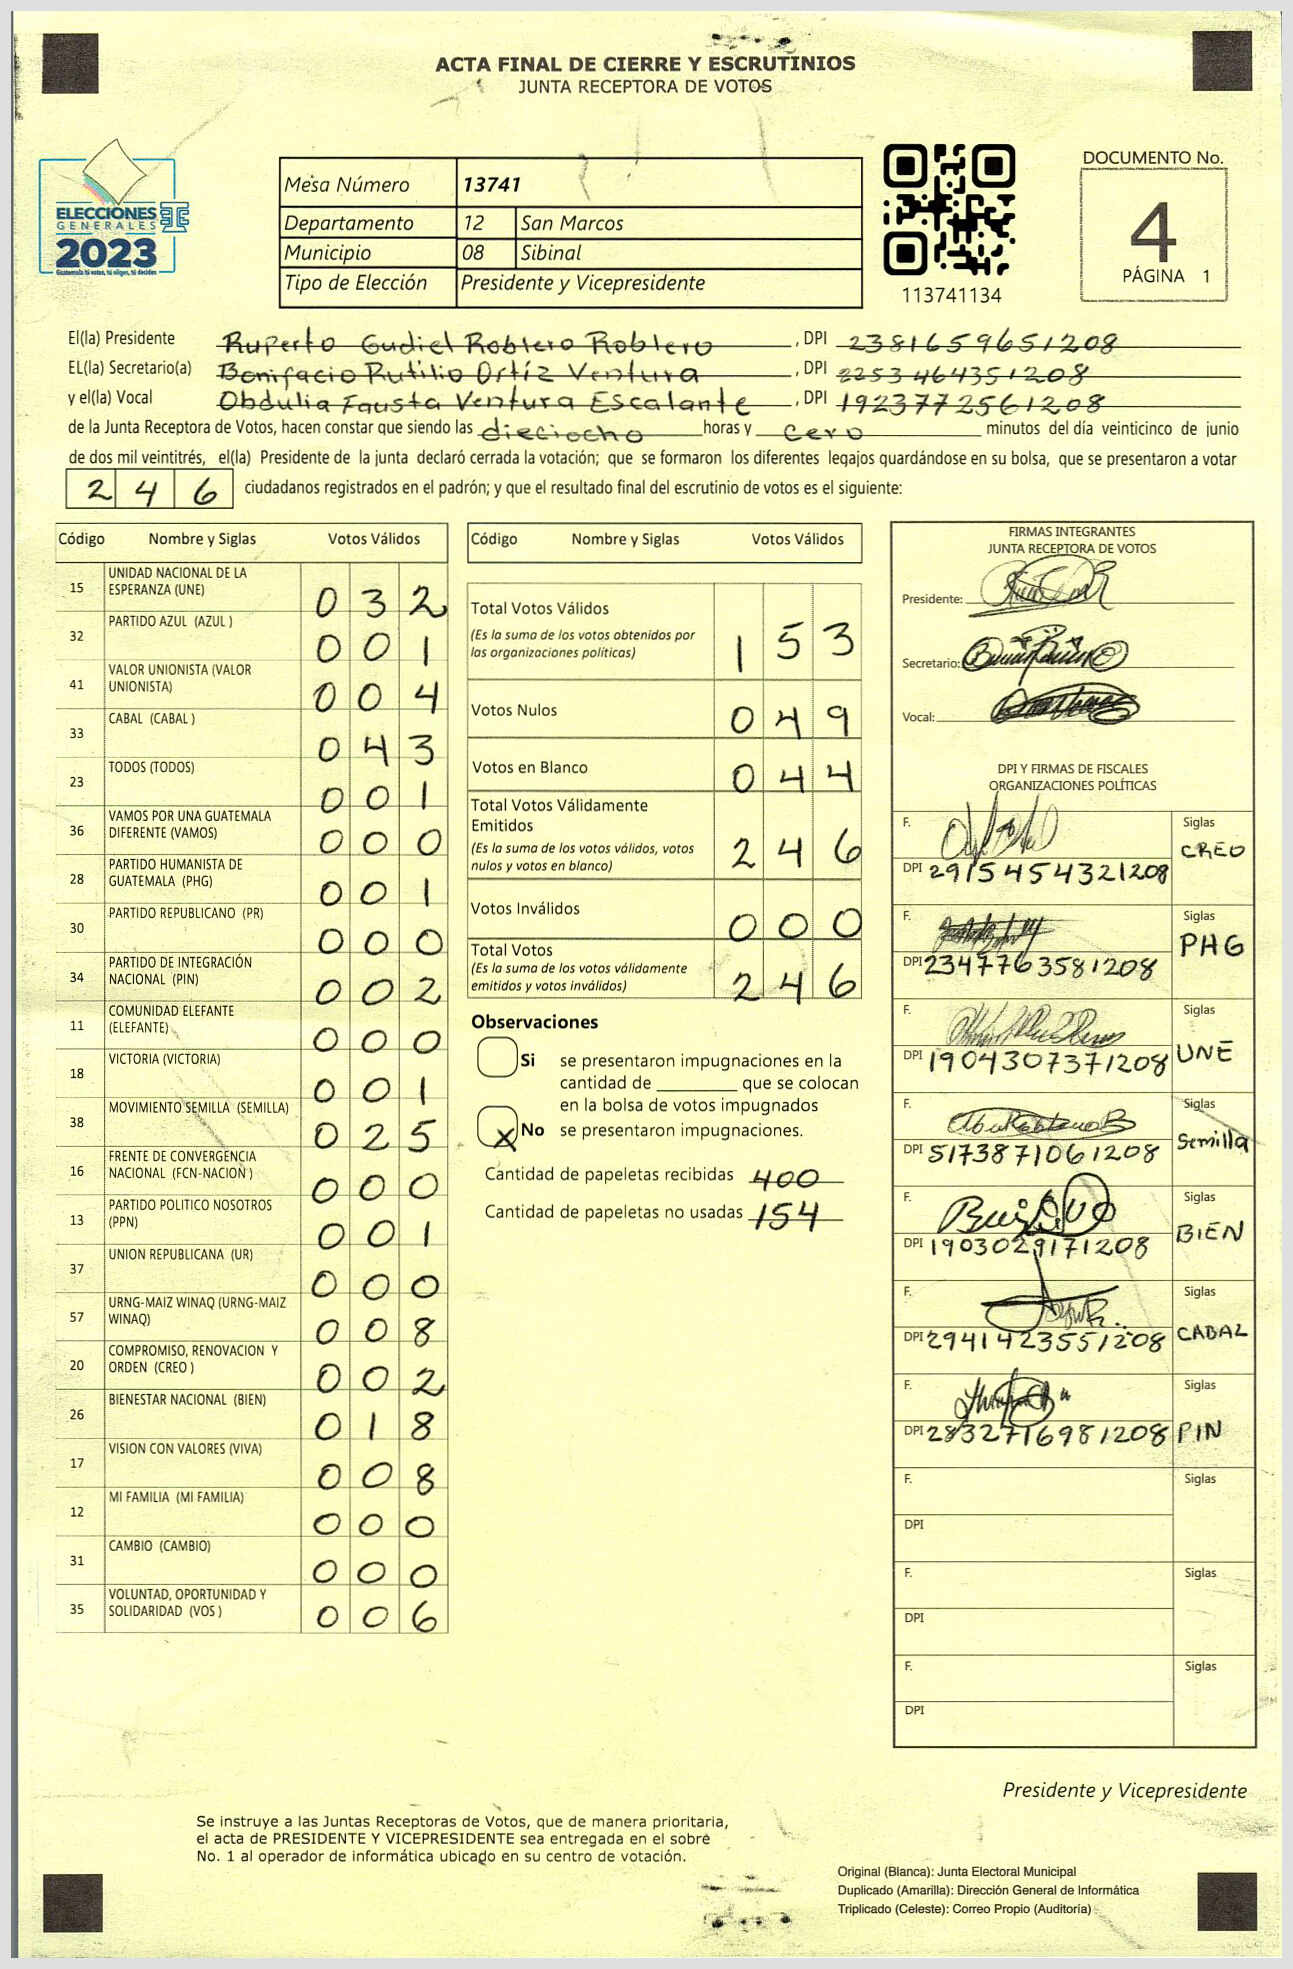 ACTA FINAL DE CIERRE Y ESCRUTINIOS
JUNTA RECEPTORA DE VOTOS
ELECCIONES
GENERALES
2023
Guatemala tú votas, tú eliges, tú decides
Mesa Número 13741
Departamento 12 San Marcos
Municipio 08 Sibinal
Tipo de Elección Presidente y Vicepresidente
113741134
DOCUMENTO No.
4
PÁGINA 1
El(la) Presidente Ruperto Gudiel Roblero Roblero, DPI 2381659651208
EL(la) Secretario(a) Bonifacio Rutilio Ortíz Ventura, DPI 2253464351208
y el(la) Vocal Obdulia Fausta Ventura Escalante, DPI 1923772561208
de la Junta Receptora de Votos, hacen constar que siendo las dieciocho horas y cero minutos del día veinticinco de junio
de dos mil veintitrés, el(la) Presidente de la junta declaró cerrada la votación; que se formaron los diferentes legajos quardándose en su bolsa, que se presentaron a votar
2 4 6 ciudadanos registrados en el padrón; y que el resultado final del escrutinio de votos es el siguiente:
Código Nombre y Siglas Votos Válidos
15 UNIDAD NACIONAL DE LA ESPERANZA (UNE) 0 3 2
32 PARTIDO AZUL (AZUL ) 0 0 1
41 VALOR UNIONISTA (VALOR UNIONISTA) 0 0 4
33 CABAL (CABAL ) 0 4 3
23 TODOS (TODOS) 0 0 1
36 VAMOS POR UNA GUATEMALA DIFERENTE (VAMOS) 0 0 0
28 PARTIDO HUMANISTA DE GUATEMALA (PHG) 0 0 1
30 PARTIDO REPUBLICANO (PR) 0 0 0
34 PARTIDO DE INTEGRACIÓN NACIONAL (PIN) 0 0 2
11 COMUNIDAD ELEFANTE (ELEFANTE) 0 0 0
18 VICTORIA (VICTORIA) 0 0 1
38 MOVIMIENTO SEMILLA (SEMILLA) 0 2 5
16 FRENTE DE CONVERGENCIA NACIONAL (FCN-NACION ) 0 0 0
13 PARTIDO POLITICO NOSOTROS (PPN) 0 0 1
37 UNION REPUBLICANA (UR) 0 0 0
57 URNG-MAIZ WINAQ (URNG-MAIZ WINAQ) 0 0 8
20 COMPROMISO, RENOVACION Y ORDEN (CREO ) 0 0 2
26 BIENESTAR NACIONAL (BIEN) 0 1 8
17 VISION CON VALORES (VIVA) 0 0 8
12 MI FAMILIA (MI FAMILIA) 0 0 0
31 CAMBIO (CAMBIO) 0 0 0
35 VOLUNTAD, OPORTUNIDAD Y SOLIDARIDAD (VOS ) 0 0 6
Código Nombre y Siglas Votos Válidos
Total Votos Válidos 1 5 3
(Es la suma de los votos obtenidos por
las organizaciones políticas)
Votos Nulos 0 4 9
Votos en Blanco 0 4 4
Total Votos Válidamente
Emitidos 2 4 6
(Es la suma de los votos válidos, votos
nulos y votos en blanco)
Votos Inválidos 0 0 0
Total Votos 2 4 6
(Es la suma de los votos válidamente
emitidos y votos inválidos)
Observaciones
Si se presentaron impugnaciones en la
cantidad de ________ que se colocan
en la bolsa de votos impugnados
X No se presentaron impugnaciones.
Cantidad de papeletas recibidas 400
Cantidad de papeletas no usadas 154
FIRMAS INTEGRANTES
JUNTA RECEPTORA DE VOTOS
Presidente:
Secretario:
Vocal:
DPI Y FIRMAS DE FISCALES
ORGANIZACIONES POLÍTICAS
F. Siglas
DPI 2915454321208 CREO
F. Siglas
DPI 2347763581208 PHG
F. Siglas
DPI 1904307371208 UNE
F. Siglas
DPI 5173871061208 Semilla
F. Siglas
DPI 1903029171208 BIEN
F. Siglas
DPI 2941423551208 CABAL
F. Siglas
DPI 2832716981208 PIN
F. Siglas
DPI
F. Siglas
DPI
F. Siglas
DPI
Presidente y Vicepresidente
Se instruye a las Juntas Receptoras de Votos, que de manera prioritaria,
el acta de PRESIDENTE Y VICEPRESIDENTE sea entregada en el sobre
No. 1 al operador de informática ubicado en su centro de votación.
Original (Blanca): Junta Electoral Municipal
Duplicado (Amarilla): Dirección General de Informática
Triplicado (Celeste): Correo Propio (Auditoría)